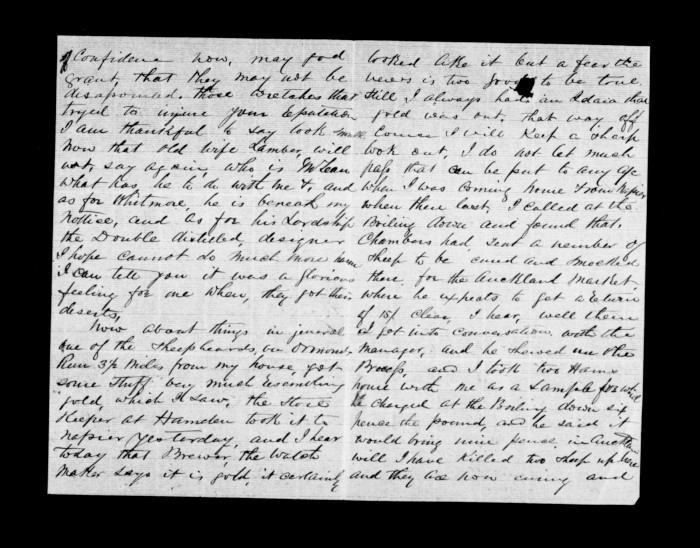 of Confidence now, may god
grant, that they may not be
disapointed. those wretches that
tryed to injure your Repetation
I am thankful to say look small
now that old wife Lamber, will
not, say again, who is McLean
what has, he to do with me &, and
as for Whitmore, he is beneath my
nottice, and as for his Lordship
the Double distilled, designer
I hope cannot do much more harm
I can tell you it was a glorious
feeling for one when, they got their
deserts,
Now about things in jeneral
one of the sheepheards, on Ormonds
Run 3½ miles from my house, got
some stuff very much Resembling
gold, which I saw, the Store
Keeper at Hamden took it to
napier yesterday, and I hear
today that Brewer, the Watch
maker says it is gold, it certainly
looked like it but a fear the
news is two good to be true,
still I always had an Idaia that
gold was out, that way off
Course I will Keep a sharp
look out, I do not let much
pass that can be put to any use
when I was coming home from Napier
when there last, I called at the
Boiling down and found that,
Chambers had, sent a number of
sheep to be cured and smocked
there, for the Auckland Market
where he expeats to get a Return
of 15/ clear, I hear, well there
I got into Conversation, with the
Manager, and he shewed me the
and I took two Hams
home with me as a sample for which
he charged at the Boiling down six
pence the pound, and he said it
would bring nine pence, in Auckland
well I have killed two sheep up here
and they are now curing and